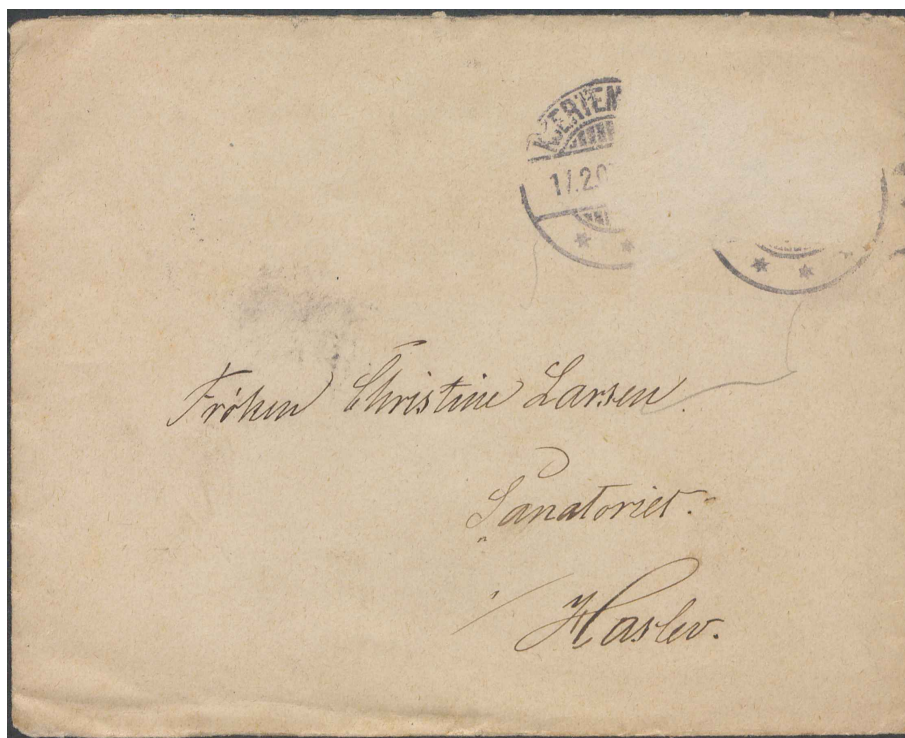 KJERTEM
17.2.0
Frøken Christine Larsen
Sanatoriet.
i/ Haslev.